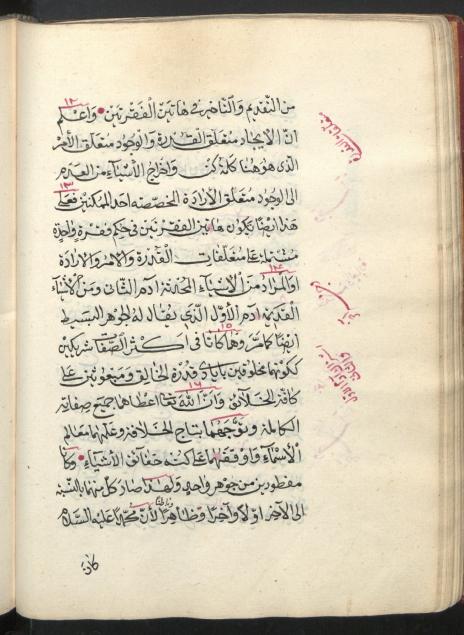 من التقديم والتاخير في هاتين الفقرتين واعلم ١٢
انّ الايجاد متعلق القدرة والوجود متعلق الأمر
الذي هو هنا كلمة كن واخراج الأشياء من العدم
الى الوجود متعلق الأرادة المخصصه احد الممكنين فعلى ١٣
هذا ايضًا تكون هاتين الفقرتين في حكم وفقرة واحدة
مشتملة على متعلقات القدرة والامر والارادة
اوالمراد من الأشياء المحدثة ادم الثاني ومن الأشياء ١٤
القديمة ادم الأول الذي يقال له الجوهر البسيط
ايضًا كما مر وهما كانا في اكثر الصفات شريكين ١٥
ككونهما مخلوقين بايادي قدرة الخالق ومبعوثين على
كافة الخلائق وانّ الله تعالى اعطاهما جميع صفاته ١٦
الكاملة وتوّجهما بتاج الخلافة وعلّمهما معالم
الأسماء واوقفهما على كنه حقائق الأشياء وكانا
مفطورين من جوهر واحد ولهذا صار كل منهما بالنسبة
الى الآخر اولًا وآخرًا وظاهرًا وباطنًا لأنّ محمدًا عليه السلام
كان